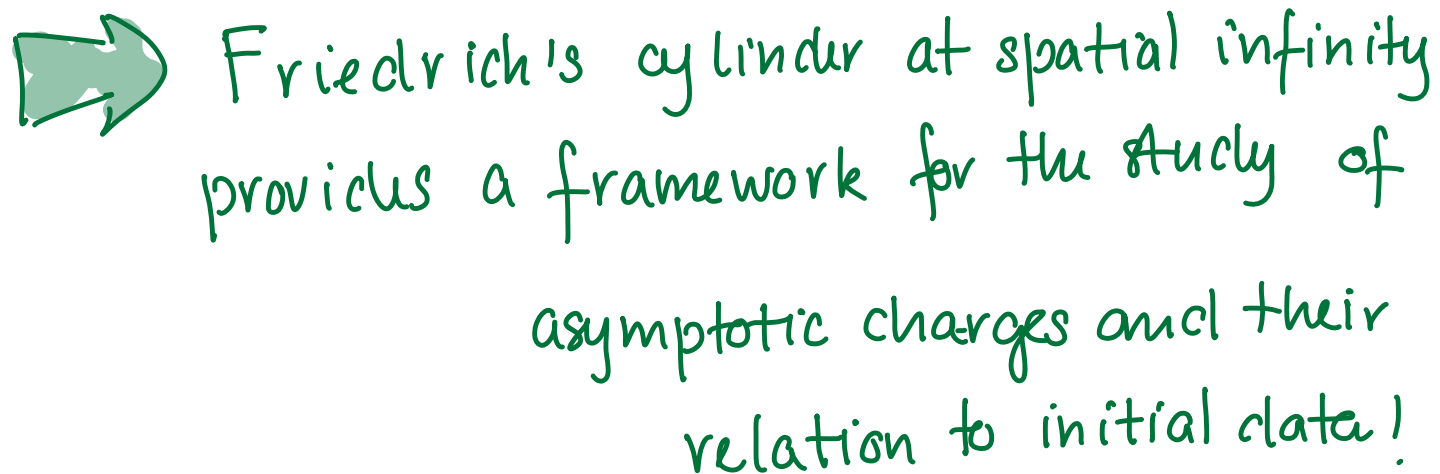 Friedrich's cylinder at spatial infinity
provides a framework for the study of
asymptotic charges and their
relation to initial data!